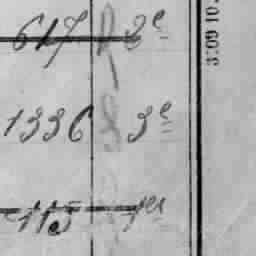 617 2e
1336 3e
115 1er
3:09 10.